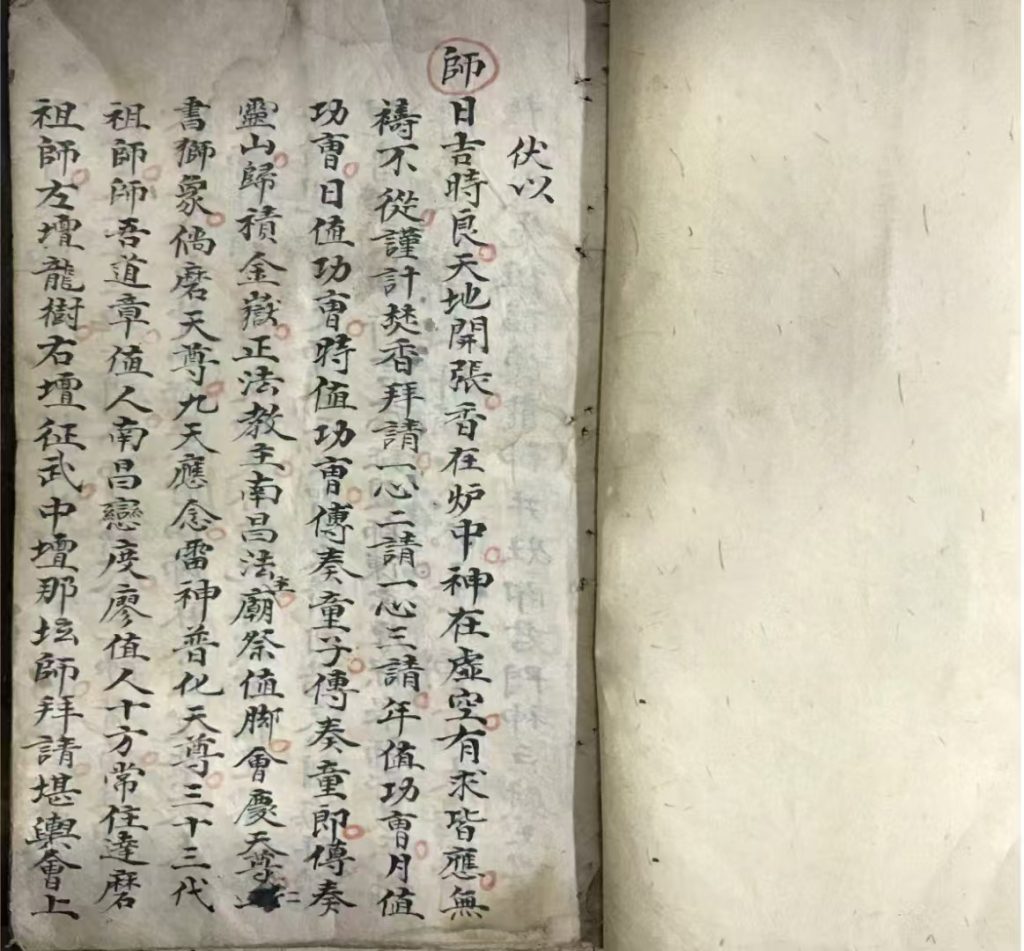 伏以
師日吉時良天地開張香在炉中神在虛空有求皆應無
禱不從謹計焚香拜請一心二請一心三請年值功曺月值
功曺日值功曺時值功曺傳奏童子傳奏童即傳奏
靈山歸積金嶽正法教主南昌法主廟祭值脚會慶天尊二
書獅象倘磨天尊九天應念雷神普化天尊三十三代
祖師師吾道章值人南昌戀度廖值人十方常住達磨
祖師左壇龍樹右壇征武中壇那坛師拜請堪輿會上